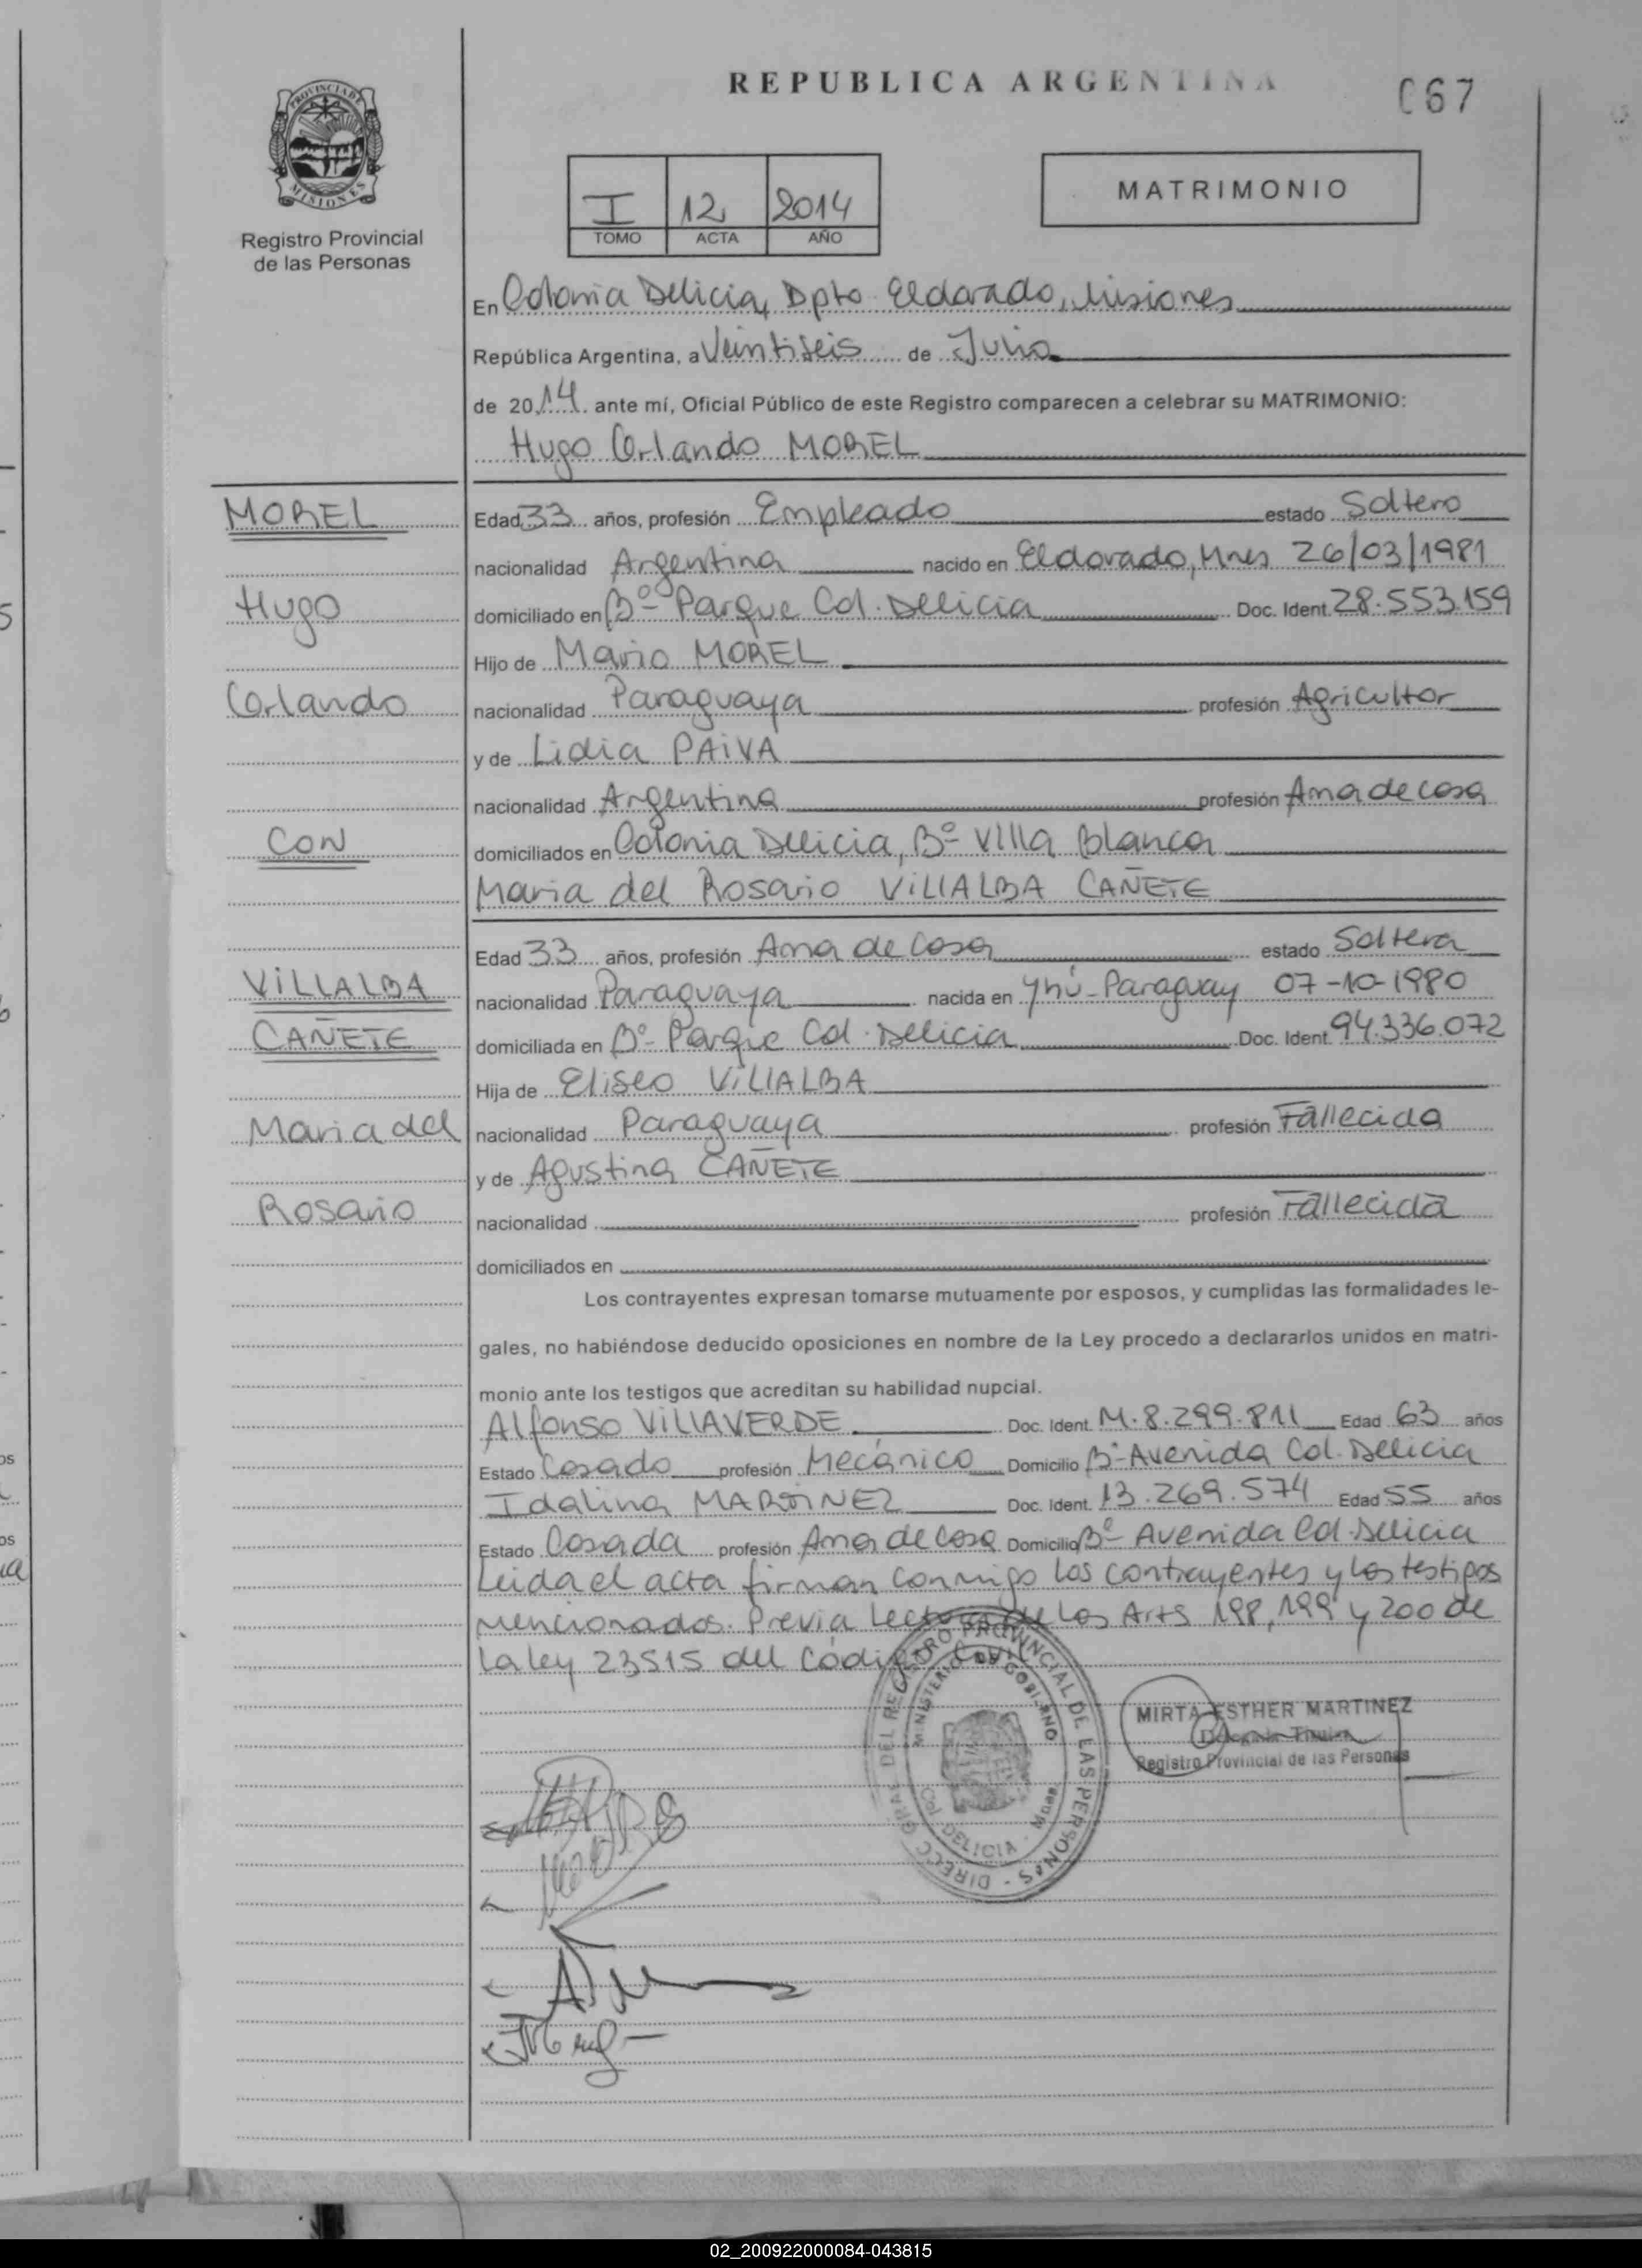 REPUBLICA ARGENTINA
067
PROVINCIA DE
MISIONES
Registro Provincial
de las Personas
I 12 2014
TOMO ACTA AÑO
MATRIMONIO
En Colonia Delicia, Dpto Eldorado, Misiones
República Argentina, a Veintiseis de Julio
de 2014 ante mí, Oficial Público de este Registro comparecen a celebrar su MATRIMONIO:
Hugo Orlando MOREL
MOREL
Hugo
Orlando
CON
VILLALBA
CAÑETE
Maria del
Rosario
Edad 33 años, profesión Empleado estado Soltero
nacionalidad Argentina nacido en Eldorado, Mnes 26/03/1981
domiciliado en Bº Parque Col. Delicia Doc. Ident. 28.553.159
Hijo de Mario MOREL
nacionalidad Paraguaya profesión Agricultor
y de Lidia PAIVA
nacionalidad Argentina profesión Ama de casa
domiciliados en Colonia Delicia, Bº Villa Blanca
Maria del Rosario VILLALBA CAÑETE
Edad 33 años, profesión Ama de Casa estado Soltera
nacionalidad Paraguaya nacida en Yhú-Paraguay 07-10-1980
domiciliada en Bº Parque Col. Delicia Doc. Ident. 94.336.072
Hija de Eliseo VILLALBA
nacionalidad Paraguaya profesión Fallecido
y de Agustina CAÑETE
nacionalidad profesión Fallecida
domiciliados en
Los contrayentes expresan tomarse mutuamente por esposos, y cumplidas las formalidades le-
gales, no habiéndose deducido oposiciones en nombre de la Ley procedo a declararlos unidos en matri-
monio ante los testigos que acreditan su habilidad nupcial.
Alfonso VILLAVERDE Doc. Ident. M.8.299.811 Edad 63 años
Estado Casado profesión Mecánico Domicilio Bº Avenida Col. Delicia
Idalina MARTINEZ Doc. Ident. 13.269.574 Edad 55 años
Estado Casada profesión Ama de Casa Domicilio Bº Avenida Col. Delicia
Leida el acta firman conmigo los contrayentes y los testigos
mencionados. Previa lectura de los Arts 198, 199 y 200 de
la ley 23515 del Código Civil
DIRECC. GRAL. DEL REGISTRO PROVINCIAL DE LAS PERSONAS
MINISTERIO DE GOBIERNO
Col. DELICIA - Mnes
MIRTA ESTHER MARTINEZ
Delegada Titular
Registro Provincial de las Personas
02_200922000084-043815